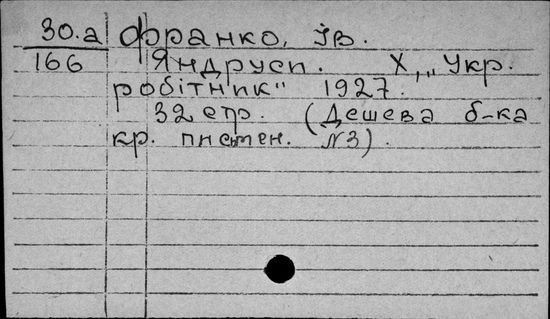 30.а Франко, Ів.
166 Яндруси. Х., „Укр.
робітник" 1927.
32 стр. (Дешева б-ка
кр. письмен. №3).